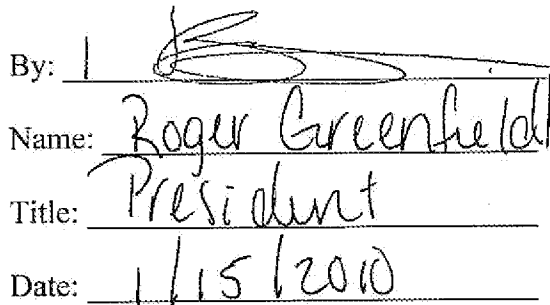 By:
Name: Roger Greenfield
Title: President
Date: 1/15/2010